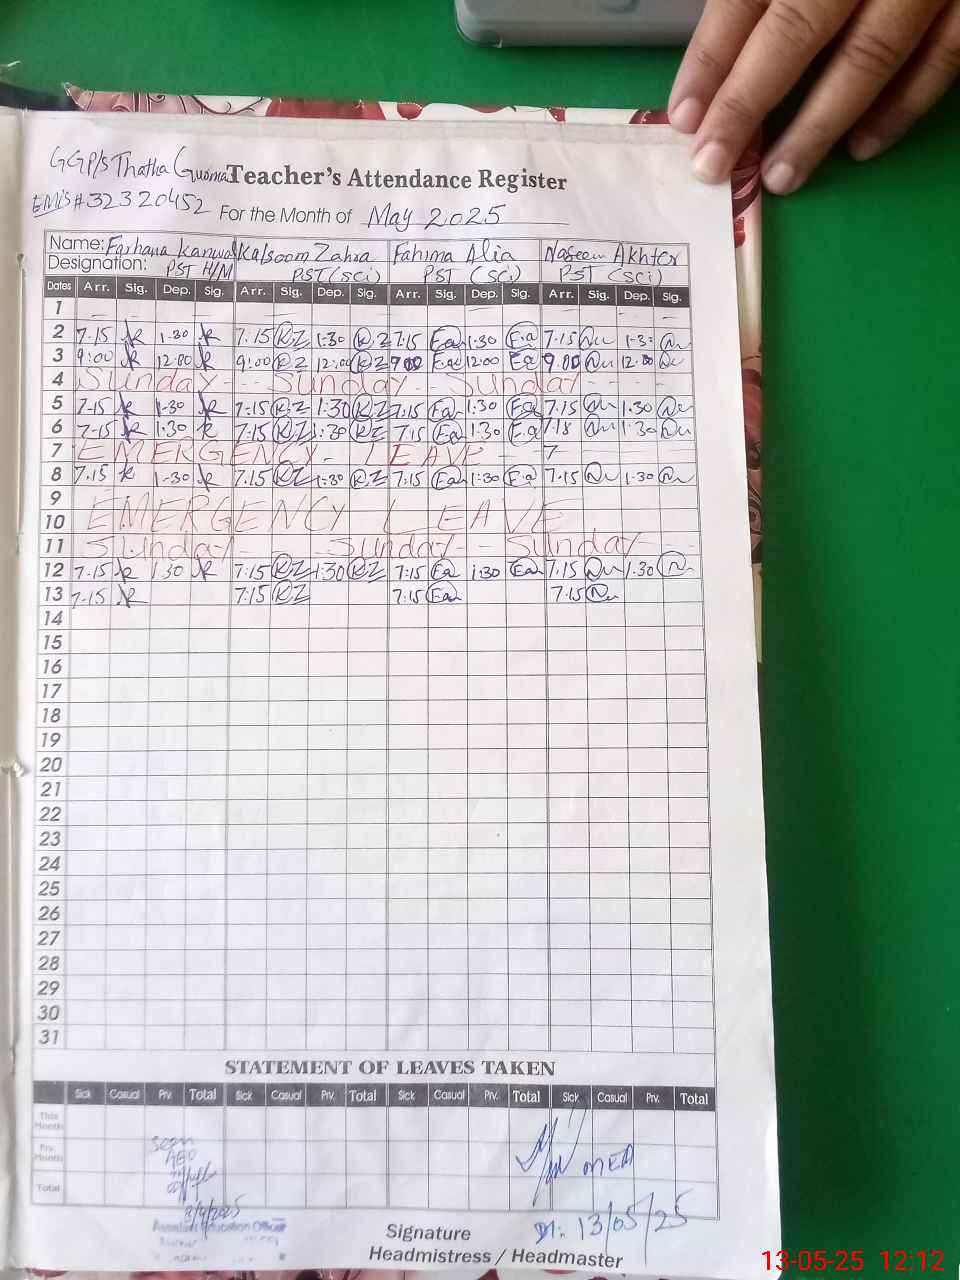 GGP/s Thatha Guoma Teacher's Attendance Register
EMIS# 32320452 For the Month of May 2025
Name: Farhana Kanwal Kalsoom Zahra Fahima Alia Naseem Akhter
Designation: PST H/M PST (sci) PST (sci) PST (sci)
Dates Arr. Sig. Dep. Sig. Arr. Sig. Dep. Sig. Arr. Sig. Dep. Sig. Arr. Sig. Dep. Sig.
1
2 7.15 k 1.30 k 7.15 KZ 1:30 K.Z 7.15 Ea 1:30 E.a 7.15 Nu 1.3 Nu
3 9:00 k 12:00 k 9:00 KZ 12:00 KZ 9:00 Ea 12:00 Ea 9.00 Nu 12:00 Nu
4 Sunday - - Sunday - - Sunday -
5 7.15 k 1.30 k 7:15 KZ 1:30 KZ 7:15 Ea 1:30 E.a 7.15 Nu 1.30 Nu
6 7.15 k 1:30 k 7:15 KZ 1:30 KZ 7.15 Ea 1:30 E.a 7.18 Nu 1.30 Nu
7 EMERGENCY - LEAVE - - 7
8 7.15 k 1.30 k 7.15 KZ 1:30 K.Z 7.15 Ea 1:30 Ea 7.15 Nu 1.30 Nu
9
10 EMERGENCY LEAVE
11 Sunday - - Sunday - - Sunday -
12 7.15 k 1.30 k 7:15 KZ 1:30 KZ 7:15 Ea 1:30 Ea 7.15 Nu 1.30 N
13 7.15 k 7:15 KZ 7:15 Ea 7.15 Nu
14
15
16
17
18
19
20
21
22
23
24
25
26
27
28
29
30
31
STATEMENT OF LEAVES TAKEN
Sick Casual Prv. Total Sick Casual Prv. Total Sick Casual Prv. Total Sick Casual Prv. Total
This Month
Prv. Month
Total
Seen
AEO
MEA
Assistant Education Officer
Dt: 13/05/25
Signature
Headmistress / Headmaster
13-05-25 12:12